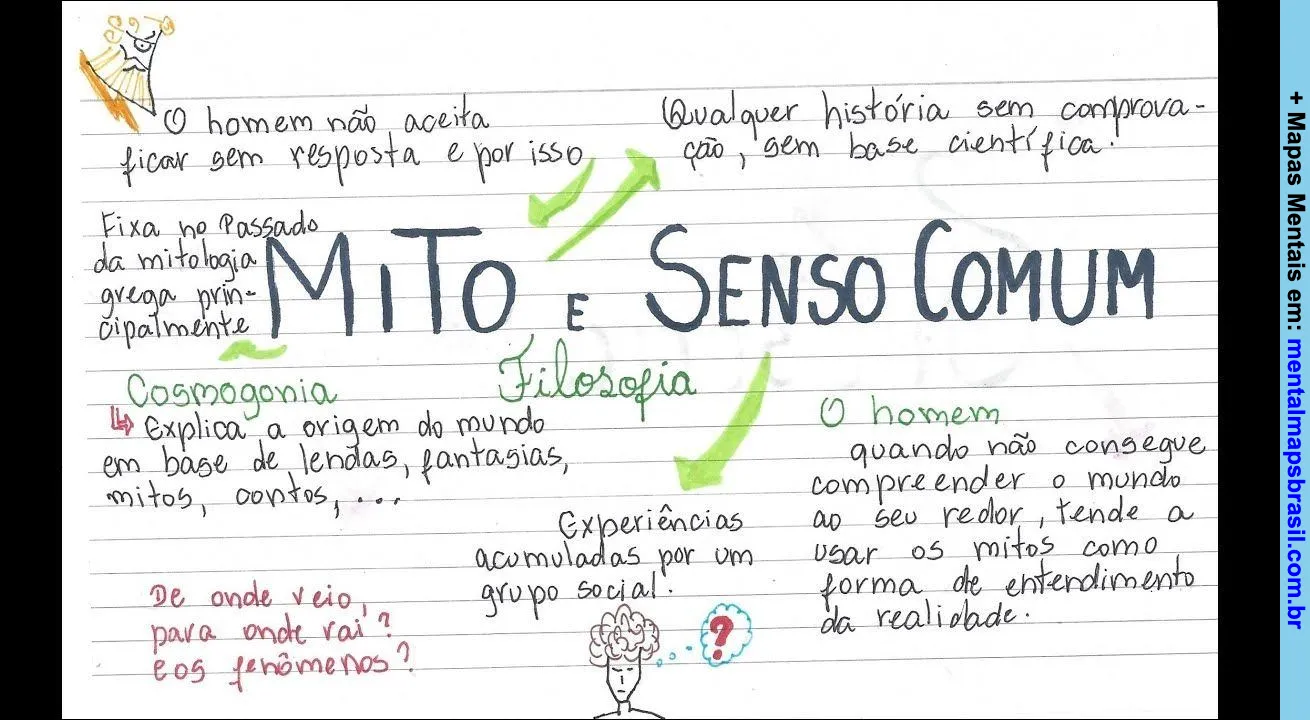 O homem não aceita
ficar sem resposta e por isso
Qualquer história sem comprova-
ção, sem base científica.
Fixa no Passado
da mitologia
grega prin-
cipalmente
MiTo E SENSO COMUM
Filosofia
Cosmogonia
Explica a origem do mundo
em base de lendas, fantasias,
mitos, contos, ...
De onde veio,
para onde vai?
e os fenômenos?
Experiências
acumuladas por um
grupo social.
?
O homem
quando não consegue
compreender o mundo
ao seu redor, tende a
usar os mitos como
forma de entendimento
da realidade.
+ Mapas Mentais em: mentalmapsbrasil.com.br